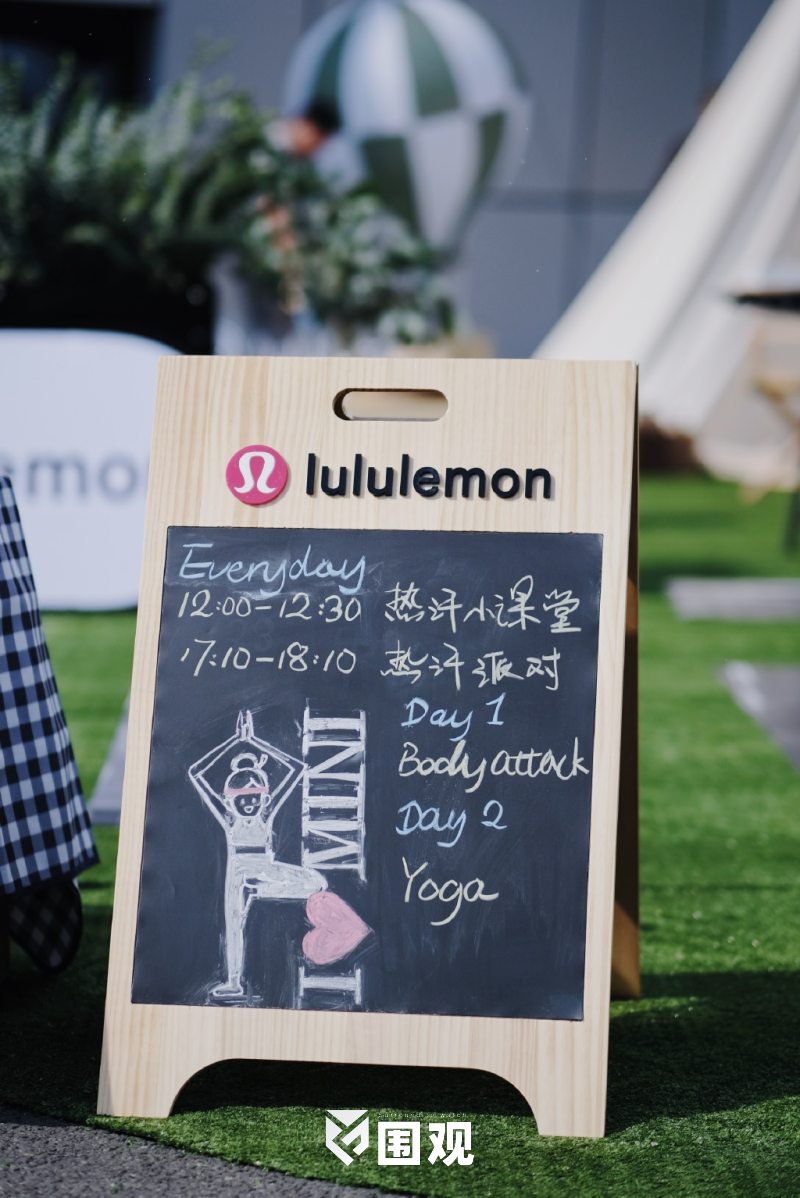 emo
lululemon
Everyday
12:00-12:30 热汗小课堂
17:10-18:10 热汗派对
Day 1
Body attack
Day 2
Yoga
I MINI
围观